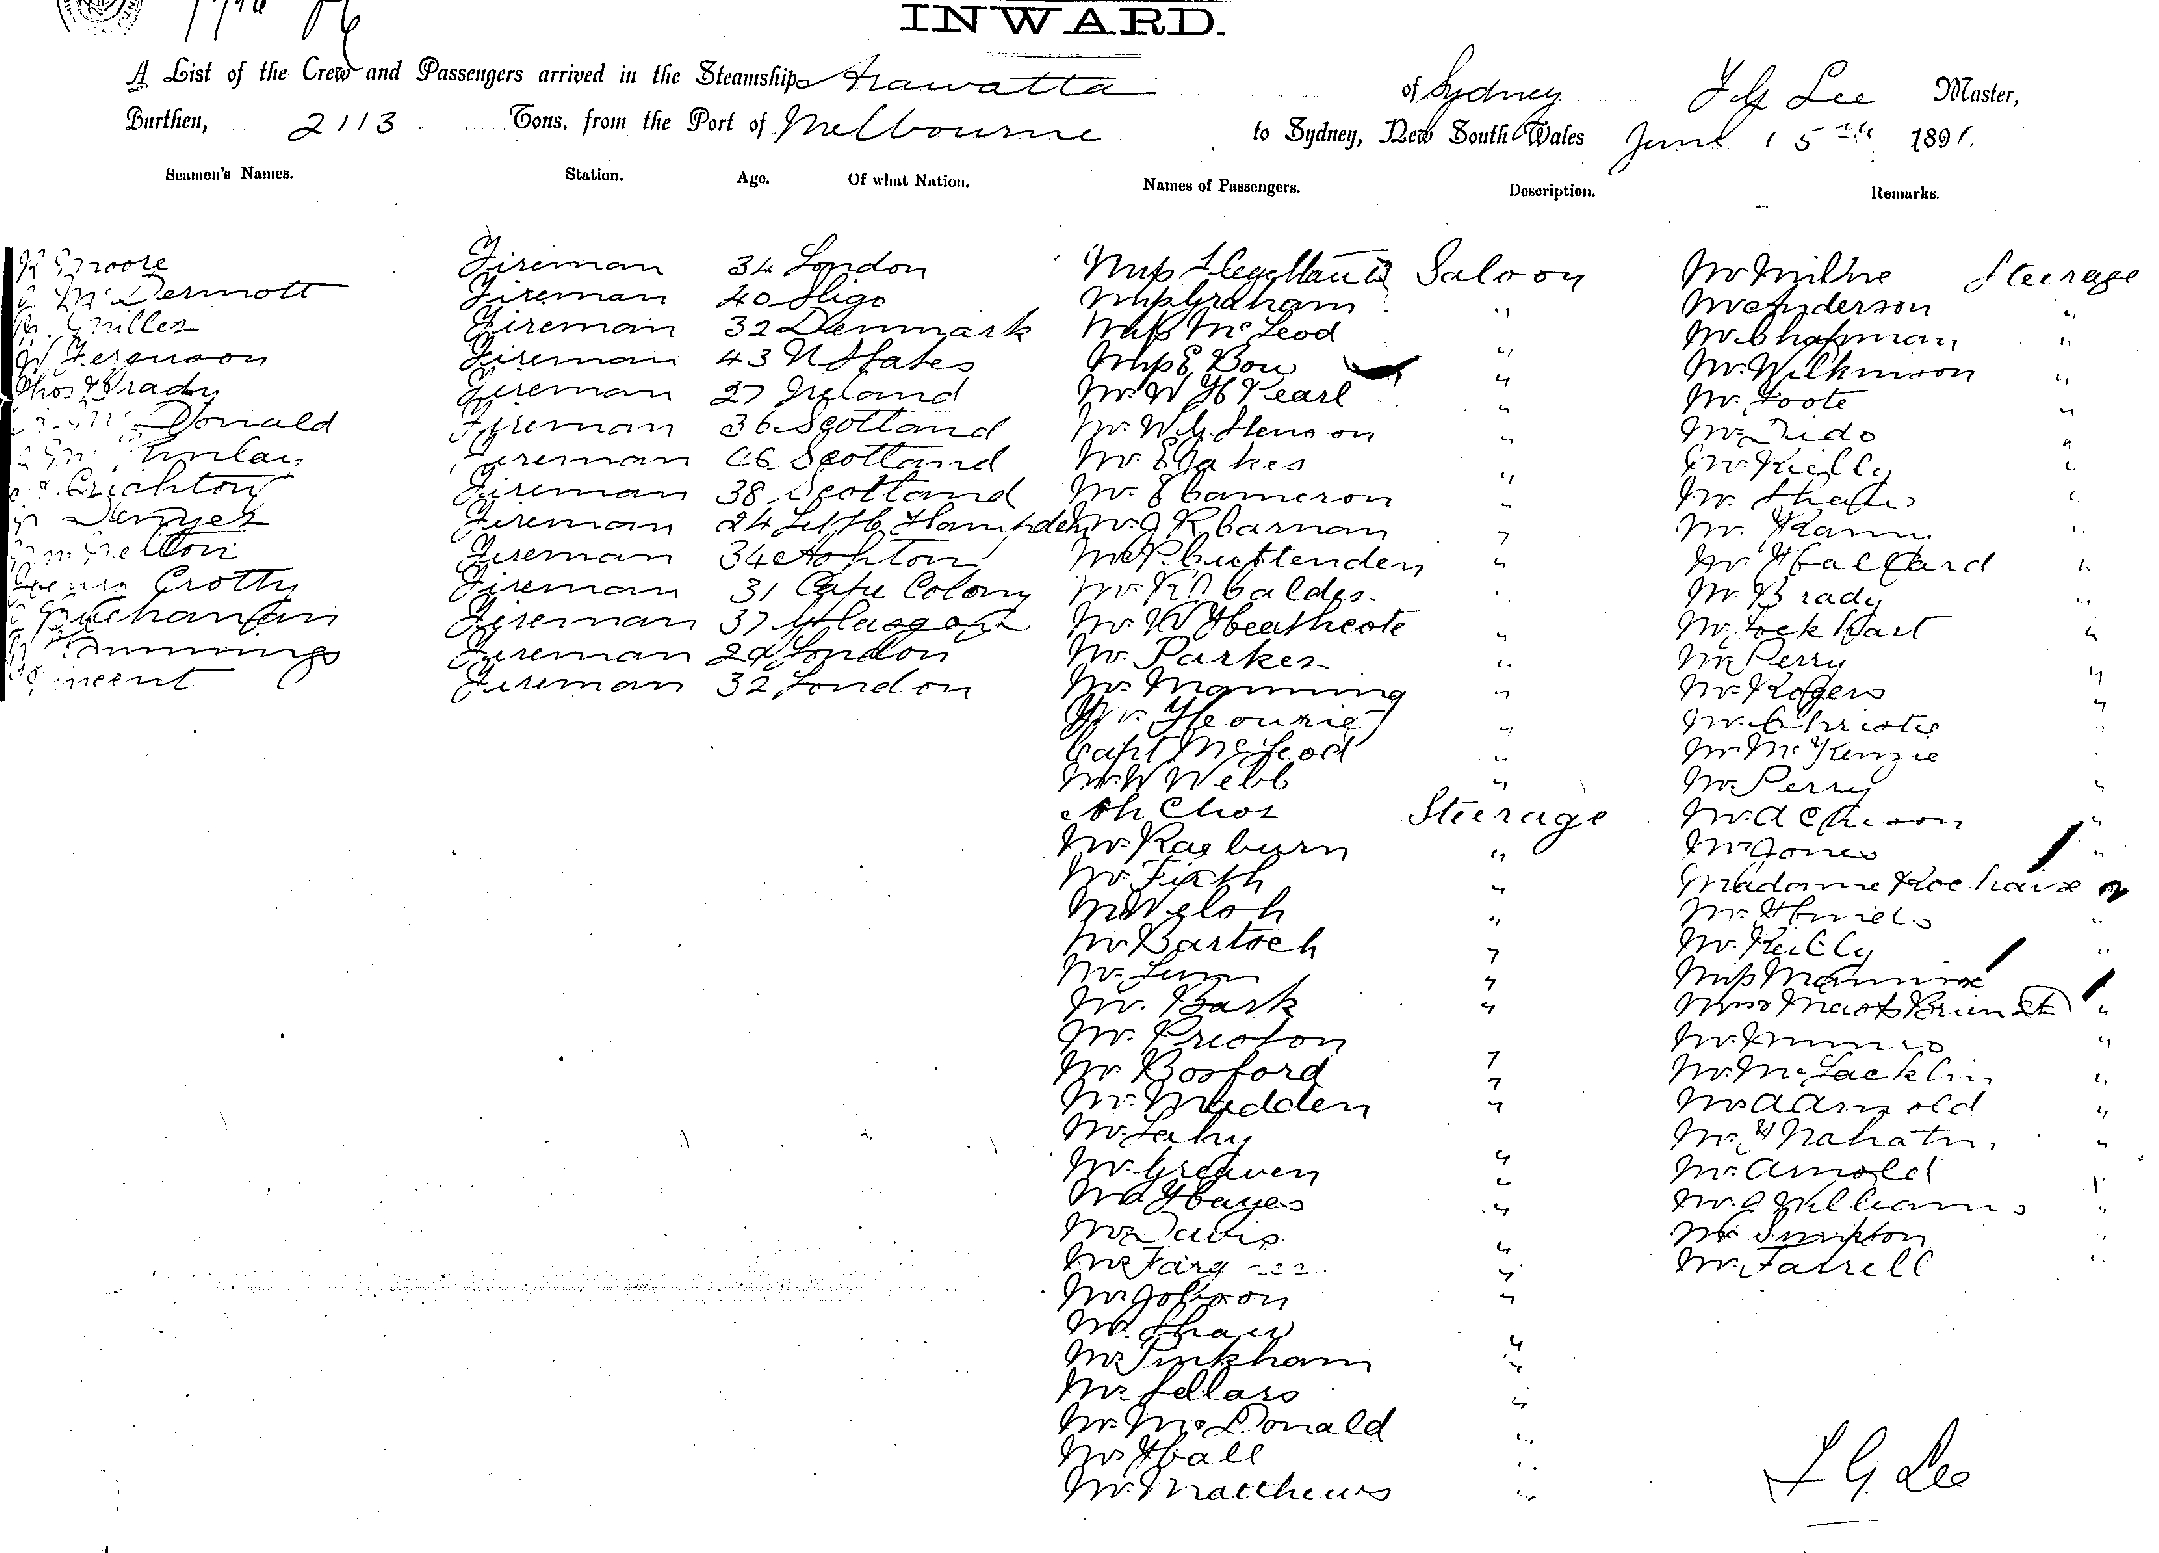 INWARD.
A List of the Crew and Passengers arrived in the Steamship Arawatta of Sydney F G Lee Master,
Burthen, 2113 Tons, from the Port of Melbourne to Sydney, New South Wales June 15th 1891.
Seamen's Names. Station. Age. Of what Nation. Names of Passengers. Description. Remarks.
Moore Fireman 34 London Miss Saloon Mr Milne Steerage
McDermott Fireman 40 Sligo Miss Graham " Mr Anderson "
Miller Fireman 32 Denmark Miss McLeod Mr Chapman "
W Ferguson Fireman 43 U States Miss E Bou " Mr Wilkinson "
Thos Brady Fireman 27 Ireland Mr W H Pearl " Mr Foote "
Donald Fireman 36 Scotland Mr W G Henson " Mr Tido "
Fireman Scotland Mr E Jakes Mr Kielly "
Crichton Fireman 38 Scotland Mr E Cameron " Mr "
Denyer Fireman 24 Hampden Mr J K Carnan " Mr "
Fireman 34 Ashton Mr P Cruttenden " Mr Hallard "
Crotty Fireman 31 Cape Colony Mr Caldes " Mr Brady "
Buchanan Fireman 37 Glasgow Mr W Heathcote " Mr Lockhart "
Cummings Fireman London Mr Parker " Mr Perry "
Vincent Fireman 32 London Mr Manning " Mr Rogers "
Mr " Mr Christie "
Capt McLeod " Mr McKenzie "
Mr W Webb " Mr Perry "
Ah Chor Steerage Mr Acheson "
Mr Raeburn " Mr Jones "
Mr Firth " Madame "
Mr Welsh " Mr "
Mr Bartsch " Mr Reilly "
Mr Miss
Mr Bark " "
Mr Preston Mr Munro "
Mr Bosford " Mr McLacklin "
Mr Madden " Mr A Arnold "
Mr Lahy Mr "
Mr Greaven " Mr Arnold "
Mr Hayes " Mr Williams "
Mr Davis " Mr Simpton
Mr " Mr Farrell "
Mr Jobson "
Mr Shaw "
Mr Pinkham "
Mr Sellars "
Mr McDonald "
Mr Hall " F G Lee
Mr Matthews "